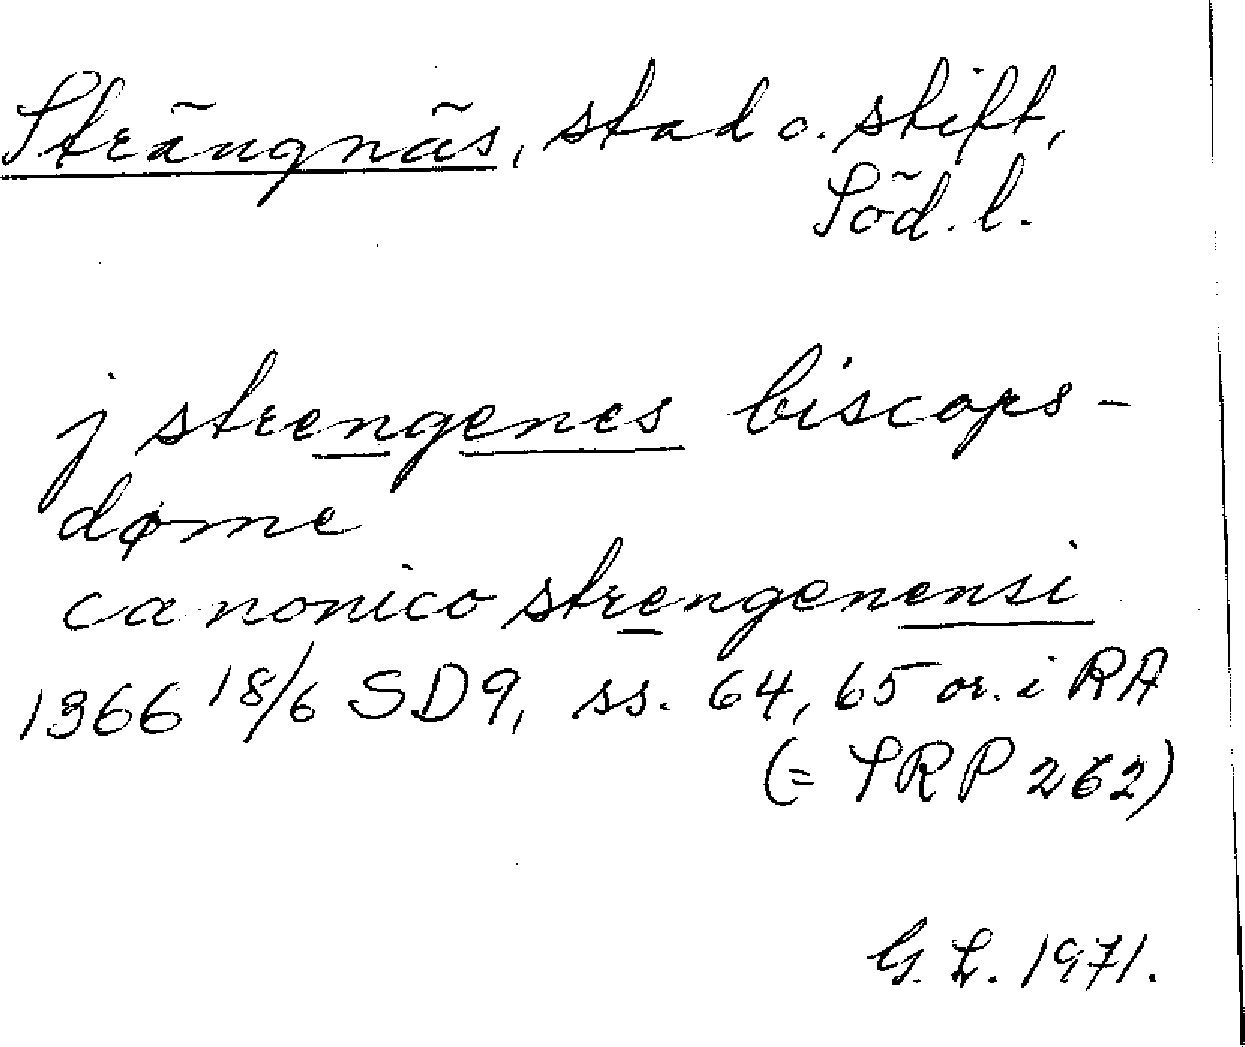 Strängnäs, stad o. stift,
Söd. l.
j strengenes biscops-
døme
canonico strengenensi
1366 18/6 SD9, ss. 64, 65 or. i RA
(= SRP 262)
G. L. 1971.